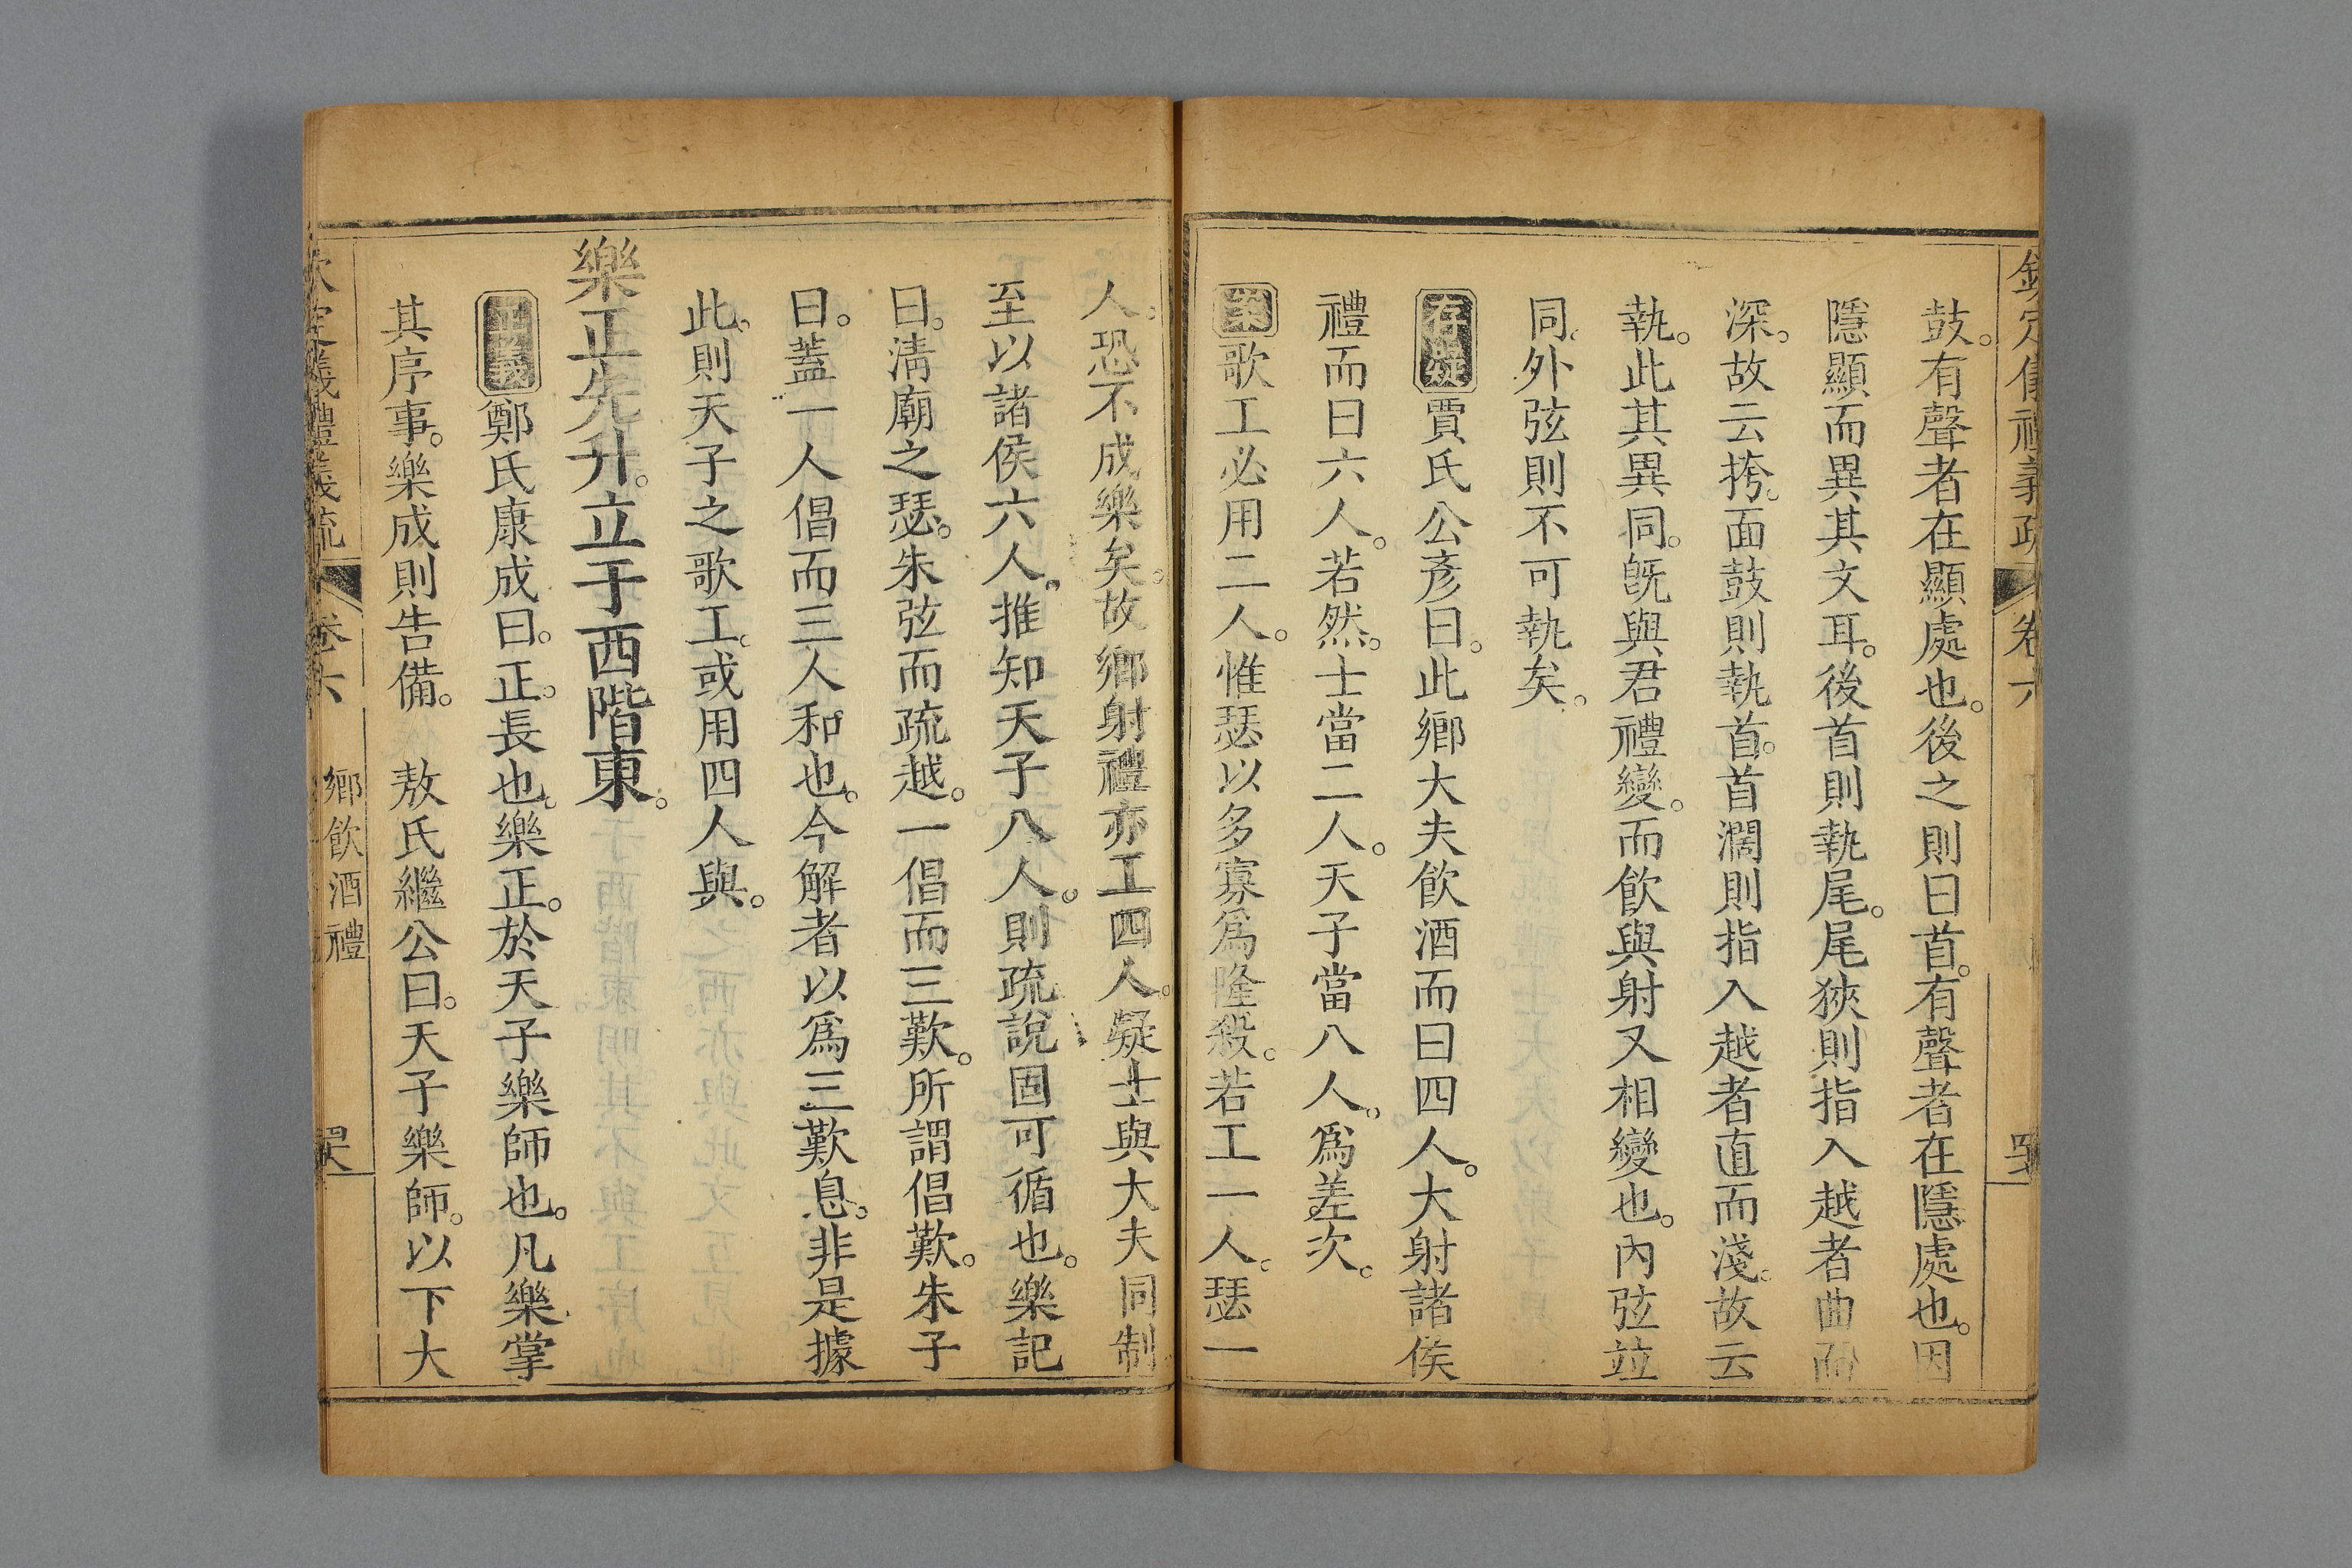 欽定儀禮義疏 卷六
鼓。有聲者在顯處也。後之則曰首。有聲者在隱處也。因
隱顯而異其文耳。後首則執尾。尾狹則指入越者曲而
深。故云挎。面鼓則執首。首濶則指入越者直而淺。故云
執。此其異同。旣與君禮變。而飮與射又相變也。內弦竝
同。外弦則不可執矣。
存疑賈氏公彥曰。此鄉大夫飮酒而曰四人。大射諸侯
禮而曰六人。若然。士當二人。天子當八人。爲差次。
案歌工必用二人。惟瑟以多寡爲隆殺。若工一人。瑟一
人。恐不成樂矣。故鄉射禮亦工四人。疑士與大夫同制
至以諸侯六人。推知天子八人。則疏說固可循也。樂記
曰。淸廟之瑟。朱弦而疏越。一倡而三歎。所謂倡歎。朱子
曰。蓋一人倡而三人和也。今解者以爲三歎息。非是據
此。則天子之歌工。或用四人與。
樂正先升。立于西階東。
正義鄭氏康成曰。正。長也。樂正。於天子樂師也。凡樂掌
其序事。樂成則告備。 敖氏繼公曰。天子樂師。以下大
欽定儀禮義疏 卷六 鄉飮酒禮